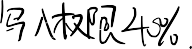 写入权限40%.